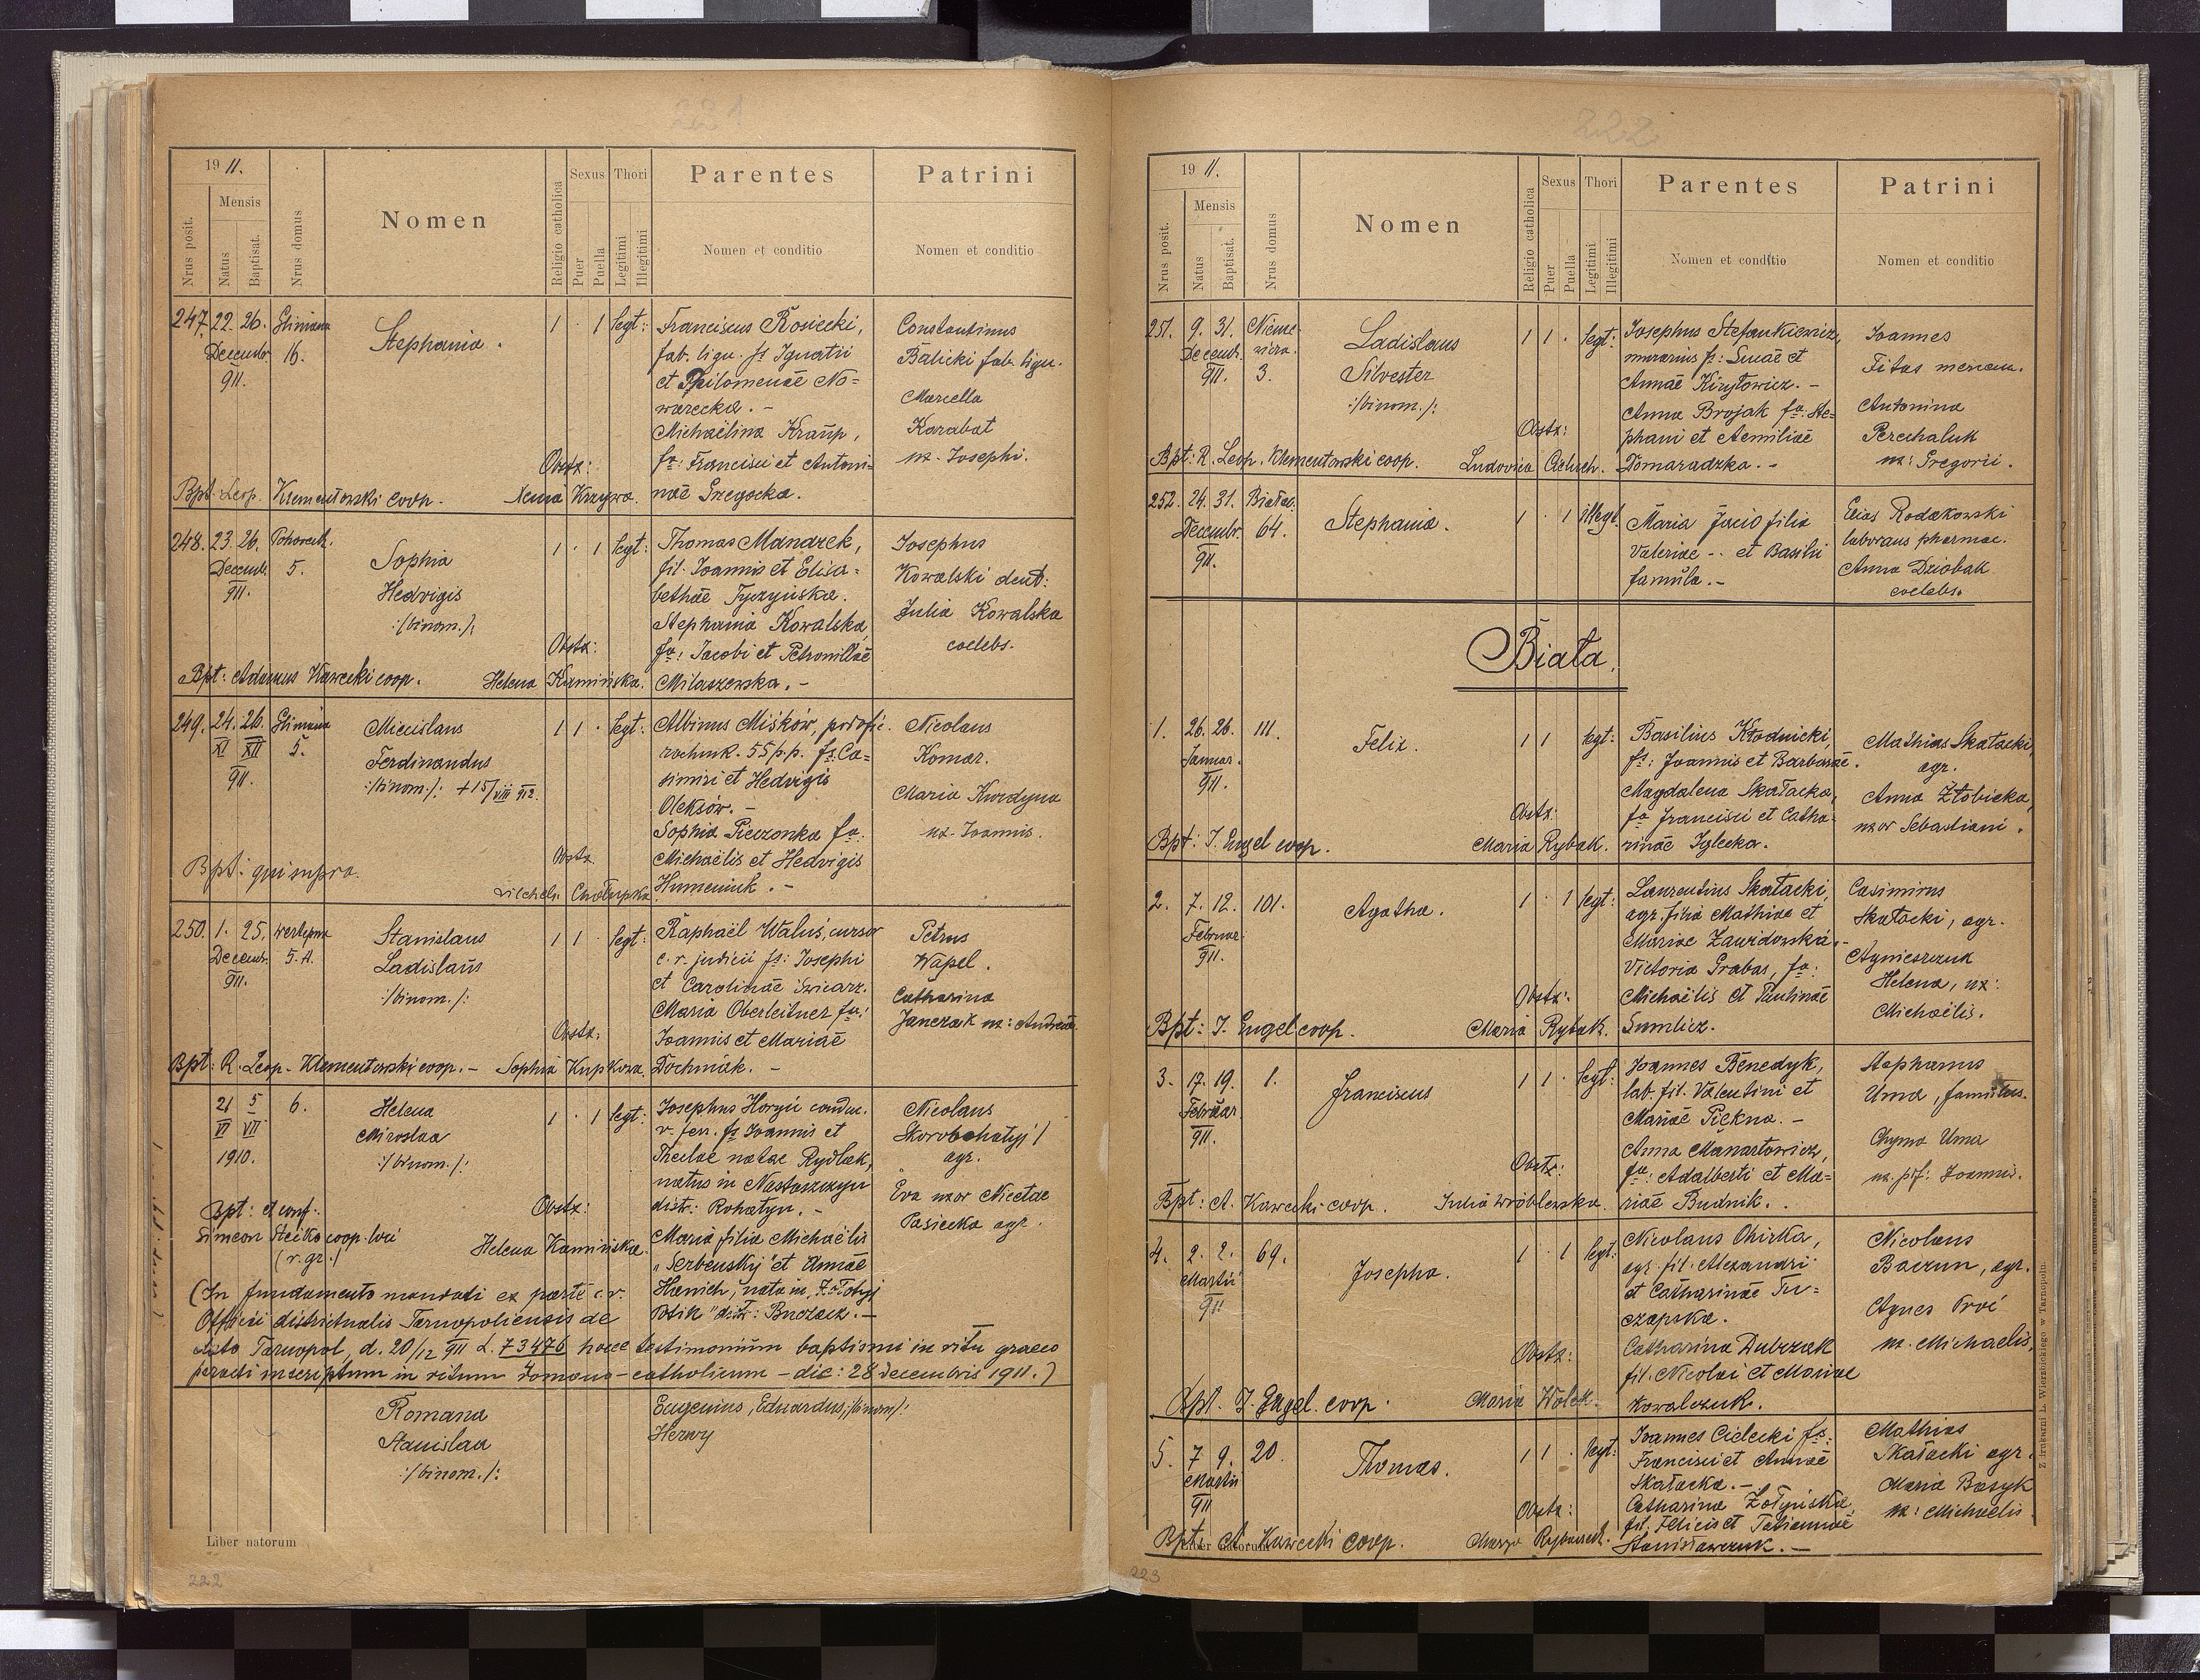 221
19 11.
Nrus posit.
Mensis
Natus
Baptisat.
Nrus domus
Nomen
Religio catholica
Sexus
Puer
Puella
Thori
Legitimi
Illegitimi
Parentes
Nomen et conditio
Patrini
Nomen et conditio
247. 22. 26. Gliniana
Decembr. 16.
911.
Stephania.
1 · 1 legt:
Franciscus Rosiecki,
fab. lign. fs Ignatii
et Philomenae No=
warecka. -
Michaëlina Kraup,
fa: Francisci et Antoni=
nae Gregocka.
Constantinus
Balicki fab. lign.
Marcella
Karabat
ux. Josephi.
Obstx:
Xenia Krzywa.
Bpt. Leop. Klementowski coop.
248. 23. 26. Pohoreck.
Decemb. 5.
911.
Sophia
Hedvigis
:/binom./:
1 · 1 legt:
Thomas Manarek,
fil. Joannis et Elisa=
bethae Tyczyńska.
Stephania Kowalska,
fa: Jacobi et Petronillae
Milaszewska. -
Josephus
Kowalski dent:
Julia Kowalska
coelebs.
Obstx:
Helena Kamińska.
Bpt: Adamus Kawecki coop.
249. 24. 26. Gliniana
XI XII 5.
911.
Miecislaus
Ferdinandus
:/binom./: +15/VIII 912.
1 1 · legt:
Albinus Miśków, podofic.
rachunk. 55 p.p. fs: Ca=
simiri et Hedvigis
Oleksów. -
Sophia Pieczonka fa:
Michaëlis et Hedvigis
Humeniuk. -
Nicolaus
Komar.
Maria Kurdyna
ux. Joannis.
Obstx.
Chałupska
Bpt: qui supra.
250. 1. 25.
Decembr. 5.A.
911.
Stanislaus
Ladislaus
:/binom./:
1 1 · legt:
Raphaël Waluś, cursor
c. r. judicii fs: Josephi
et Carolinae Świcarz.
Maria Oberleitner fa:
Joannis et Mariae
Dochniak. -
Petrus
Wapel.
Catharina
Janczak ux: Andreae.
Obstx:
Sophia Kupkowa.
Bpt: R. Leop. Klementowski coop. -
21 5 6.
VI VII
1910.
Helena
Miroslaa
:/binom./:
1 · 1 legt:
Josephus Horyń conduc.
v. ferr. fs Joannis et
Theclae natae Rydlak,
natus in Nastaszczyn
distr: Rohatyn. -
Maria filia Michaëlis
"Serbenskij" et Annae
Hanich, nata in "Zołotyj
Potik" distr: Buczacz. -
Nicolaus
Skorobohatyj /
agr.
Eva uxor Nicetae
Pasiecka agr.
Bpt: et conf:
Simeon Steiko coop. loci
(r. gr.)
Obstx:
Helena Kamińska.
(In fundamento mandati ex parte c. r.
Officii districtualis Tarnopoliensis de
dato Tarnopol, d. 20/12 911 L. 73476 hocce testimonium baptismi in ritu graeco
peracti inscriptum in ritum romano-catholicum - die: 28 decembris 1911.)
Romana
Stanislaa
:/binom./:
Eugenius, Eduardus, :/binom/:
Herwy
Liber natorum
222
222
19 11.
Nrus posit.
Mensis
Natus
Baptisat.
Nrus domus
Nomen
Religio catholica
Sexus
Puer
Puella
Thori
Legitimi
Illegitimi
Parentes
Nomen et conditio
Patrini
Nomen et conditio
251. 9. 31.
Decemb.
911. 3.
Ladislaus
Silvester
:/binom./:
1 1 · legt:
Josephus Stefankiewicz,
murarius fs: Lucae et
Annae Kiryłowicz. -
Anna Brojak fa: Ste=
phani et Aemiliae
Domaradzka. -
Joannes
Fitas mercan.
Antonina
Perechaluk
ux: Gregorii.
Obstx:
Ludovica
Bpt: R. Leop. Klementowski coop.
252. 24. 31. Białac.
Decembr. 64.
911.
Stephania.
1 · 1 illegt.
Maria Jacio filia
Valeriae - et Basilii
famula. -
Elias Rodakowski
laborans pharmac.
Anna Dziobak
coelebs.
Biała.
1. 26. 26. 111.
Januar.
911.
Felix.
1 1 legt:
Basilius Kłodnicki,
fs: Joannis et Barbarae.
Magdalena Skałacka,
fa Francisci et Catha=
rinae Iglecka.
Mathias Skałacki,
agr.
Anna Złobicka,
uxor Sebastiani.
Obstx:
Maria Rybak.
Bpt: J. Engel coop.
2. 7. 12. 101.
Februar.
911.
Agatha.
1 · 1 legt:
Laurentius Skałacki,
agr. filia Mathiae et
Mariae Zawidowska. -
Victoria Grabas, fa:
Michaëlis et Paulinae
Sumlicz.
Casimirus
Skałacki, agr.
Agnieszczuk
Helena, ux:
Michaëlis.
Obstx:
Maria Rybak.
Bpt: J. Engel coop.
3. 17. 19. 1.
Februar.
911.
Franciscus
1 1 · legt:
Joannes Benedyk,
lab. fil. Valentini et
Mariae Piekna. -
Anna Manartowicz,
fa: Adalberti et Ma=
riae Budnik.
Stephanus
Uma, famulus.
Chyma Uma
ux. pff: Joannis.
Obstx:
Julia Wróblewska.
Bpt: A. Kawecki coop.
4. 2. 2. 69.
Martii
911
Josepha.
1 · 1 legt:
Nicolaus Ohirka,
agr. fil. Alexandri
et Catharinae Tu=
czapska.
Catharina Dubczak
fil. Nicolai et Mariae
Kowalczuk.
Nicolaus
Baczun, agr.
Agnes Proć
ux. Michaelis,
Obstx:
Maria Wołek.
Bpt. J. Engel. coop.
5. 7 9. 20.
Martii
911
Thomas.
1 1 · legt:
Joannes Cielecki fs:
Francisci et Annae
Skałacka. -
Catharina Żołyńska,
fil: Felicis et Tatiannae
Stanisławczuk. -
Mathias
Skałacki agr.
Maria Basyk
ux: Michaelis
Obstx:
Bpt. A. Kawecki coop.
Liber natorum
Z drukarni L. Wierzbickiego w Tarnopolu.
223